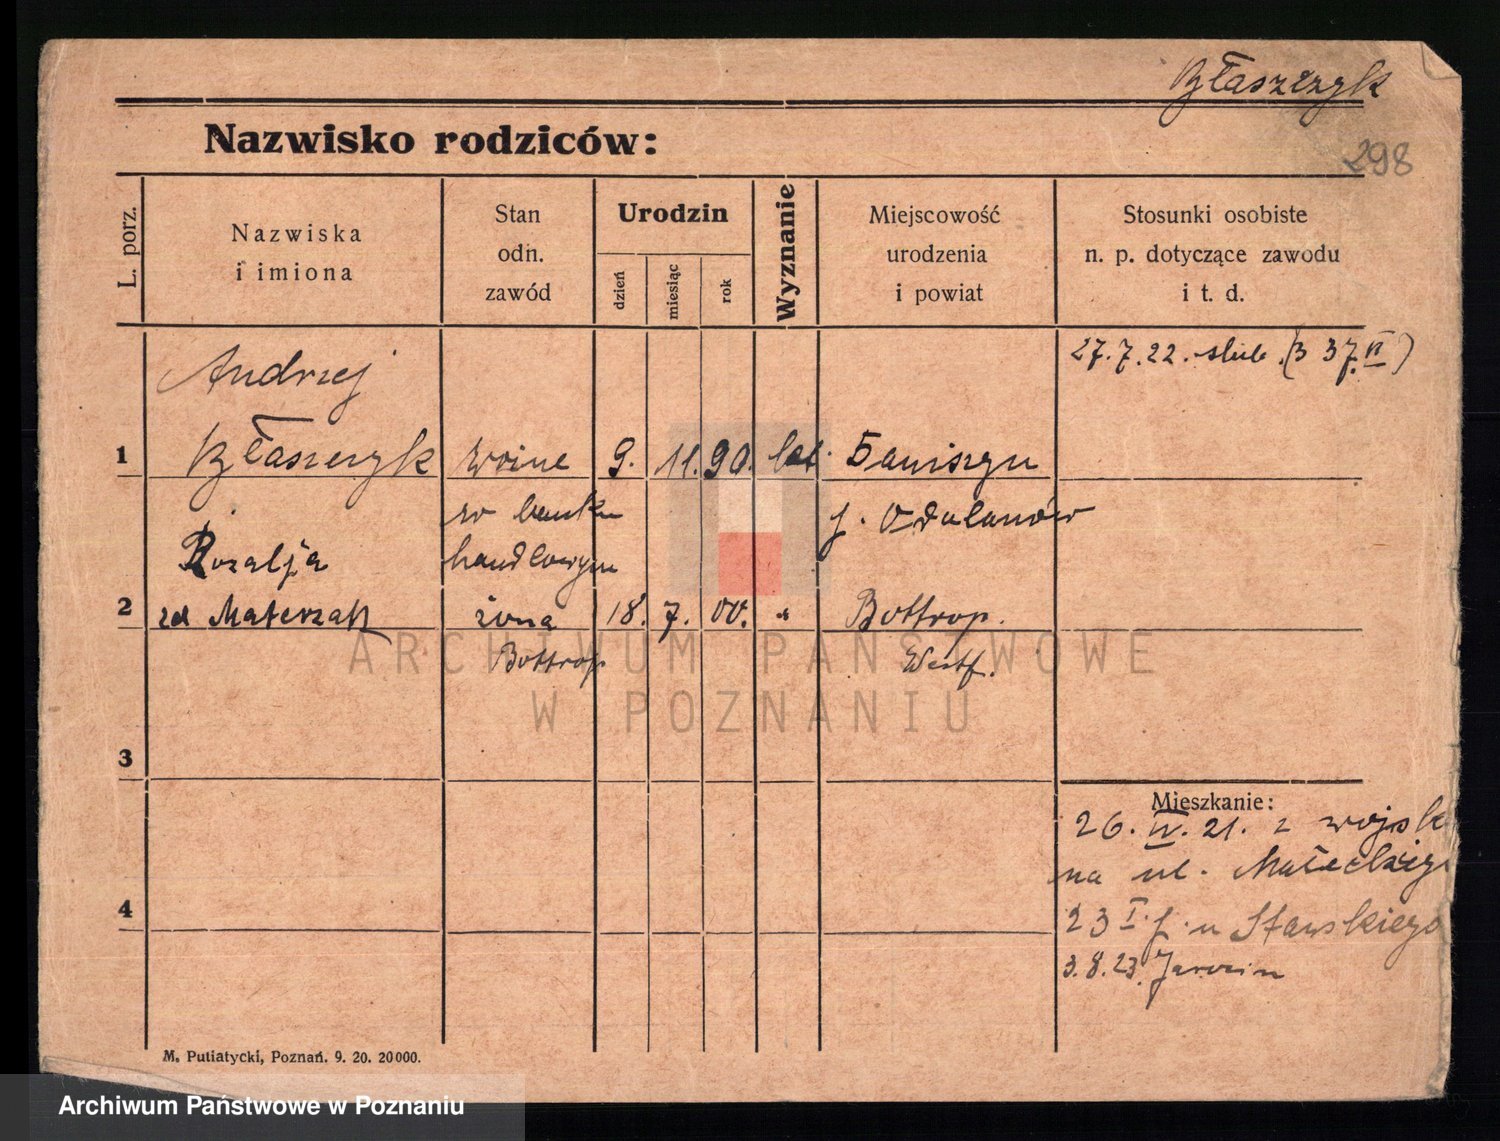 Błaszczyk
Nazwisko rodziców:
298
L. porz.
Nazwiska
i imiona
Stan
odn.
zawód
Urodzin
dzień
miesiąc
rok
Wyznanie
Miejscowość
urodzenia
i powiat
Stosunki osobiste
n. p. dotyczące zawodu
i t. d.
27.7.22. slub. (B 37. VI)
Andrzej
1 Błaszczyk woźne 9. 11. 90. kat. Daniszyn
w banku p. Odolanów
handlowym
Rozalja
2 zd Materzak żona 18. 7. 00. " Bottrop.
Bottrop Westf.
3
Mieszkanie:
26. IV. 21. z wojsk
na ul. Małeckiego
4
23 I f. u Stawskiego
3.8.23. Jarocin
M. Putiatycki, Poznań. 9. 20. 20000.
ARCHIWUM PAŃSTWOWE
W POZNANIU
Archiwum Państwowe w Poznaniu